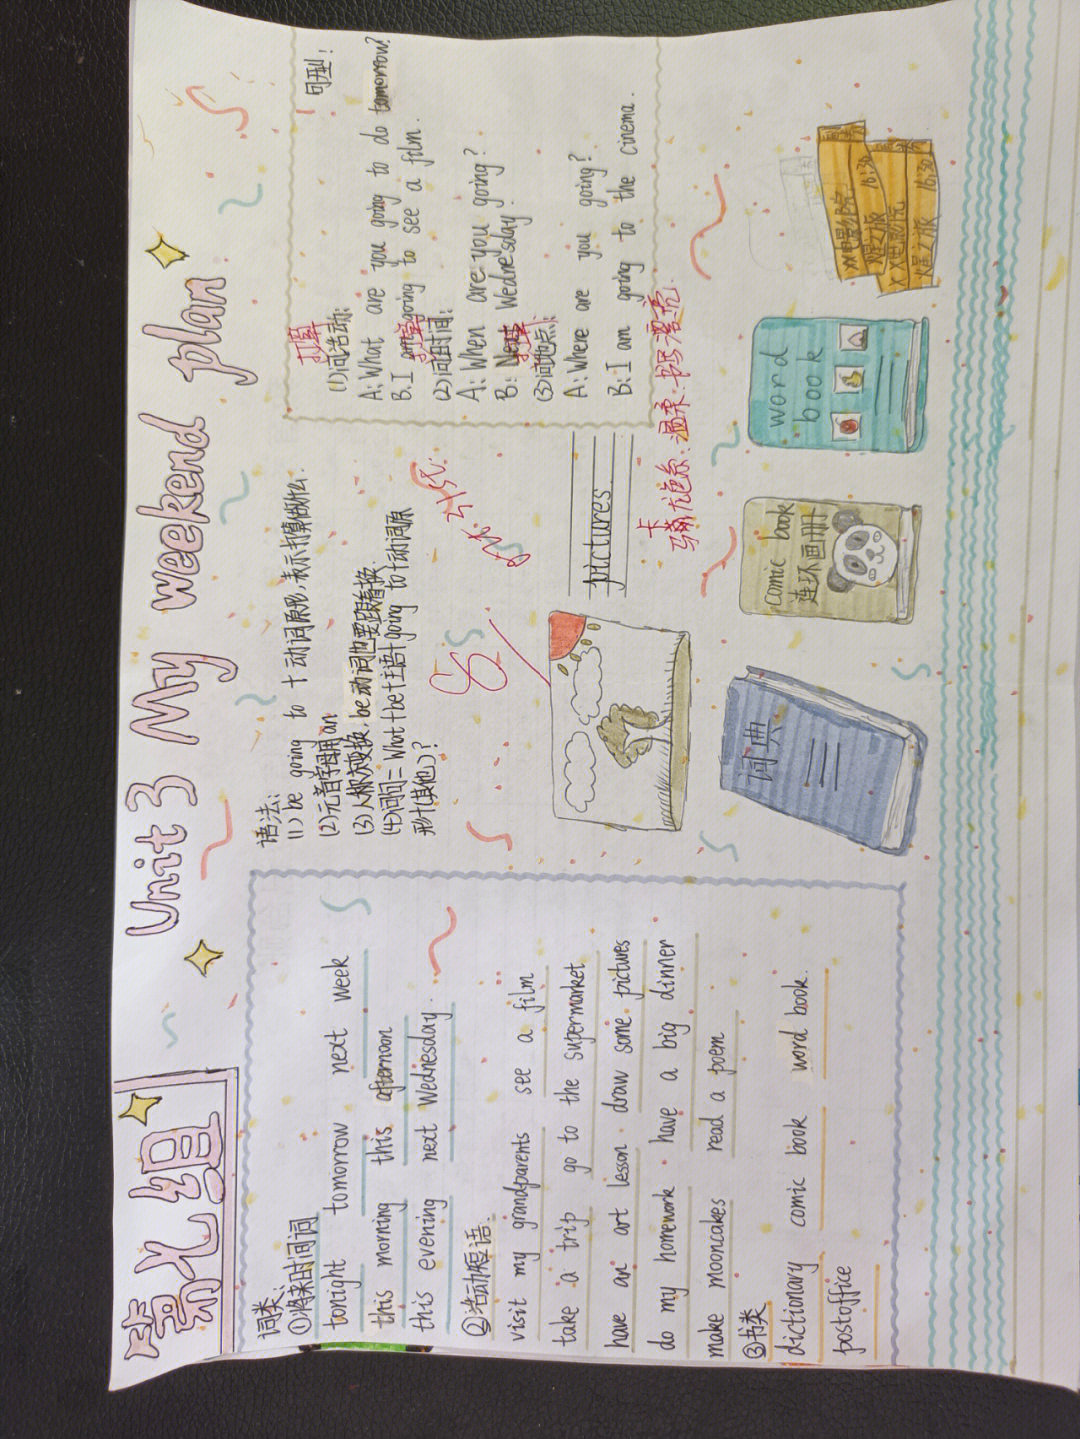 曙光组
Unit 3 My weekend plan
词类:
①将来时间词
tonight tomorrow next week
this morning this afternoon
this evening next Wednesday.
②活动短语.
visit my grandparents see a film
take a trip go to the supermarket
have an art lesson draw some pictures
do my homework have a big dinner
make mooncakes read a poem
③书类
dictionary comic book word book.
postoffice
语法:
(1) be going to + 动词原形,表示打算做什么.
(2)元音字母用an
(3)人称变换,be动词也要跟着换.
(4)问句=What+be+主语+going to+动词原
形+(其他)?
pictures
词典
comic book
连环画册
word
book
XX电影院
16:30
XX电影院
16:30
句型:
打算
(1)问活动:
A: What are you going to do tomorrow?
B: I am going to see a film.
打算
(2)问时间:
A: When are you going?
B: Next Wednesday.
打算
(3)问地点:
A: Where are you going?
B: I am going to the cinema.